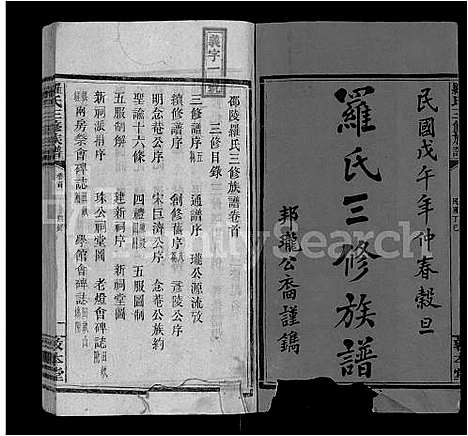 民國戊午年仲春穀旦
羅氏三修族譜
邦瓏公裔謹鐫
敦本堂
義字一號
邵陵羅氏三修族譜卷首
三修目錄
三修譜序五 通譜序 瓏公源流攷
續修譜序 創修舊序 彥陵公序
明念菴公序 宋巨濟公序 念菴公族約
聖諭十六條 四禮 五服圖制
五服制解 建新祠序 新祠堂圖
新祠派捐序 珠公祠堂圖 老燈會碑誌
兩房祭會碑誌 學館會碑誌
羅氏三修族譜
卷首
敦本堂
FamilySearch